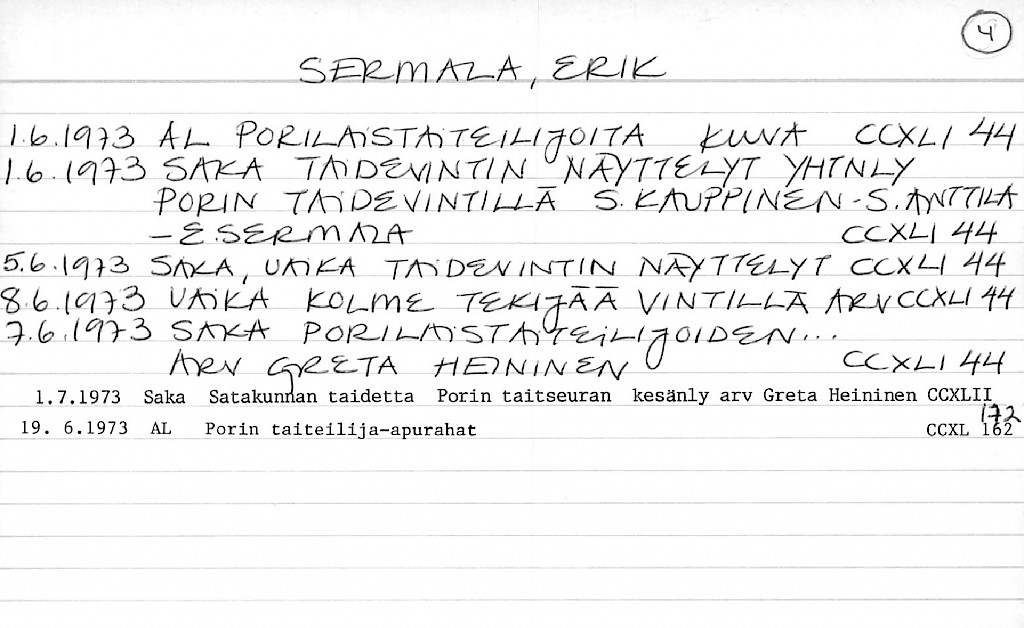 4
SERMALA, ERIK
1.6.1973 AL PORILAISTAITEILIJOITA KUVA CCXLI 44
1.6.1973 SAKA TAIDEVINTIN NÄYTTELYT YHTNLY
PORIN TAIDEVINTILLÄ S. KAUPPINEN - S. ANTTILA
- E. SERMALA CCXLI 44
5.6.1973 SAKA, UAIKA TAIDEVINTIN NÄYTTELYT CCXLI 44
8.6.1973 UAIKA KOLME TEKIJÄÄ VINTILLÄ ARV CCXLI 44
7.6.1973 SAKA PORILAISTAITEILIJOIDEN...
ARV GRETA HEININEN CCXLI 44
1.7.1973 Saka Satakunnan taidetta Porin taitseuran kesänly arv Greta Heininen CCXLII
172
19. 6.1973 AL Porin taiteilija-apurahat CCXL 162